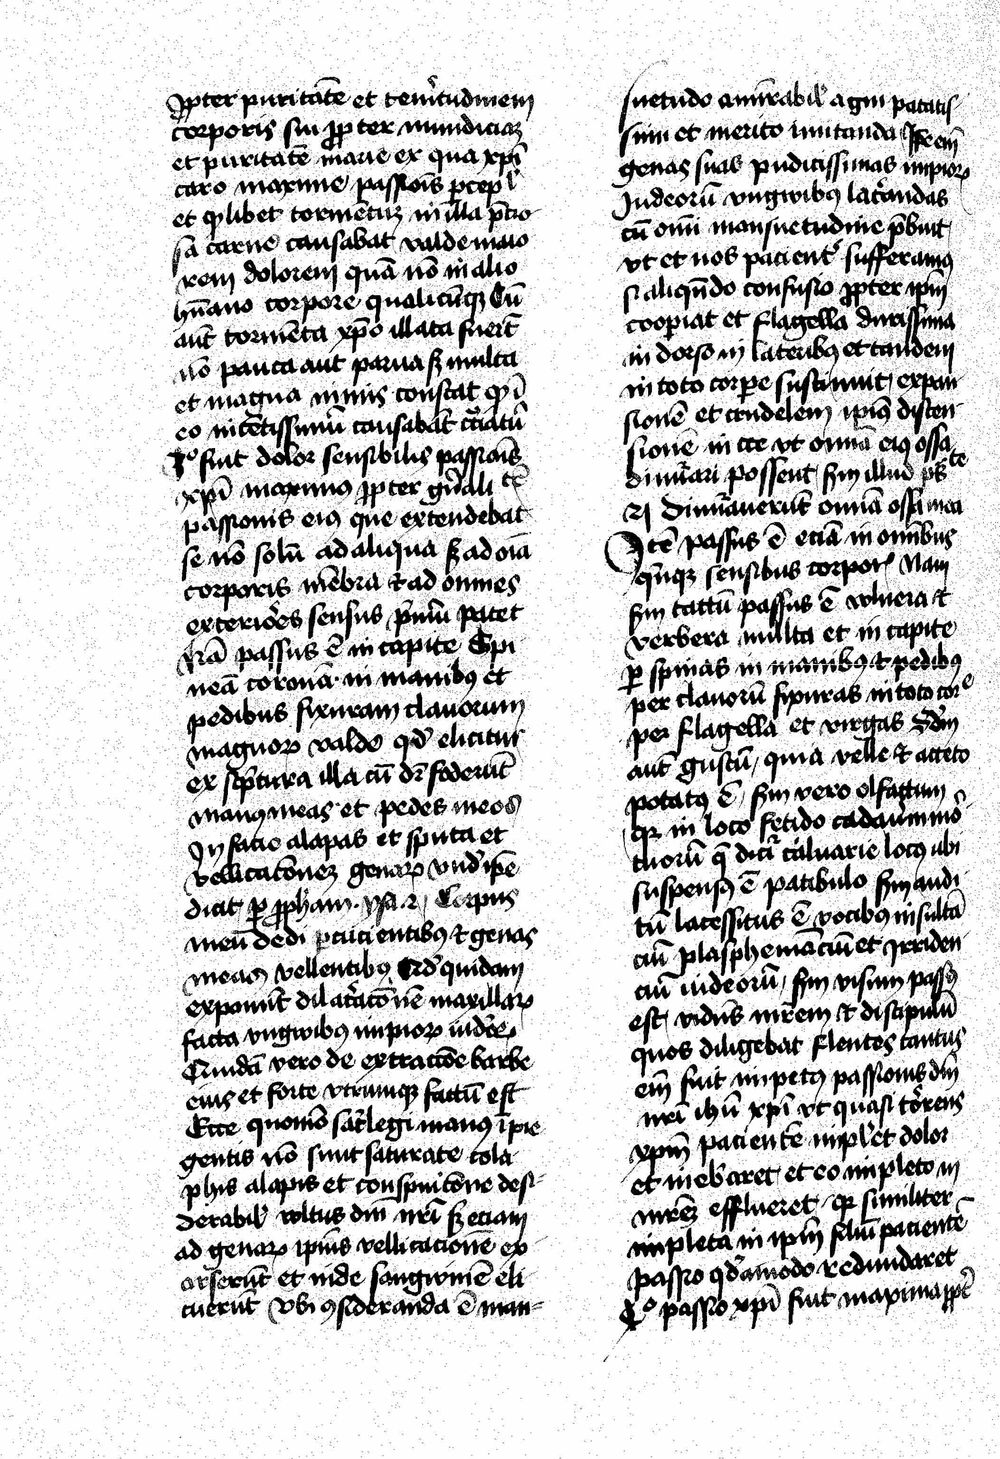 ꝓpter puritatē et tenĩtudinem
corporis sui ꝓpter mundiciaꝫ
et puritatē marie ex qua xp̄i
caro maxime passiōis p̄cepĩ
et qͥlibet tormētuꝫ in illa p̄cio
sa carne causabat valde maio
rem dolorem quā nō in alio
hūano corpore qualicūqꝫ Cū
aut̄ tormēta xp̄o illata fuerūt
nō pauca aut parua sꝫ multa
et magna nimis constat qͥ ī
eo int̄ētissimū causabāt cͥciatū
fuit dolor sensibilis passiōis
xp̄i maximus ꝓpter gn̄ali tē
passionis eiꝯ que extendebat
se nō solū ad aliqua sꝫ ad oīa
corporis mēbra ⁊ ad omnes
exteriōes sensus pͥmū patet
Nā passus ē in capite Spi
neā coronā in manibꝯ et
pedibus fixuram clauorum
magnoꝝ valde qd̓ elicitur
ex scͥptura illa cū dr̄ foderūt
manꝯ meas et pedes meos
In facie alapas et sputa et
vellicatōneꝫ genaꝝ vnd̓ ip̄e
dicit ꝑ ꝓpħam ysa. Corpus
meū dedi ꝑcucientibꝯ ⁊ genas
meas vellentibꝯ qd̓ quidam
exponūt dilac̄atōnē maxillaꝝ
facta vngwibus impioꝝ iudeoꝝ
Quidā vero de extractōe barbe
eius et forte vtrumqꝫ factū est
Ecce quomō sac̄legi manꝯ īpie
gentis nō sunt saturate cola
phis alapis et conspuitōne desi-
derabil̓ voltus dm̄ nr̄i sꝫ etiam
ad genaꝝ ipius vellicacionē ex
arserūt et inde sangwinē eli
cuerūt Vbi ꝯsideranda ē man-
suetudo amirabil̓ agni
simi et merito imitanda Ipse em̄
genas suas pudicissimas impioꝝ
Iudeorū vngwibꝯ lac̄andas
cū omī mansuetudine p̄buit
vt et nos pacient̓ sufferamꝯ
si aliqn̄do confusio ꝓpter ip̄m
coopiat et flagella durissima
in dorso in lateribꝯ et tandem
in toto corpe sustinuit expan
sionē et crudelem ipiꝯ disten
sionē in cͣce vt omīa eiꝯ ossa
dinūari possent sm̄ illud pͣs
Dinūauerūt omīa ossa mea
Itē passus ē etiā in omnibus
qͥnqꝫ sensibus corpor̓ Nam
sm̄ tactū passus ē vlnera ⁊
verbera multa et in capite
ꝑ spinas in manibꝯ ⁊ pedibꝯ
per clauorū fixuras in toto corͤ
per flagella et virgas Sdm̄
aut̄ gustū quia velle ⁊ aceto
potatꝯ ē sm̄ vero olfactum
qͣ in loco fetido cadaūm mō
tuorū q̄ dicͥ caluarie locꝯ ubi
suspensꝯ ē patibulo sm̄ audi
tū lacessitus ē vocibꝯ insultā
ciū plasphemāciū et irriden
ciū iudeorū sm̄ visum passꝯ
est vidēs mr̄em ⁊ discipulū
quos diligebat flentes tantus
em̄ fuit impetꝯ passionis dm̄
nr̄i ihū xp̄i vt quasi tōrens
xp̄m pacientē impl̓et dolor
et ineb̓aret et eo impleto in
mr̄eꝫ efflueret qͣ similiter
impleta in ip̄m filiū pacientē
passio qd̓amodo redundaret
passio xp̄i fuit maxima ꝓpt̓